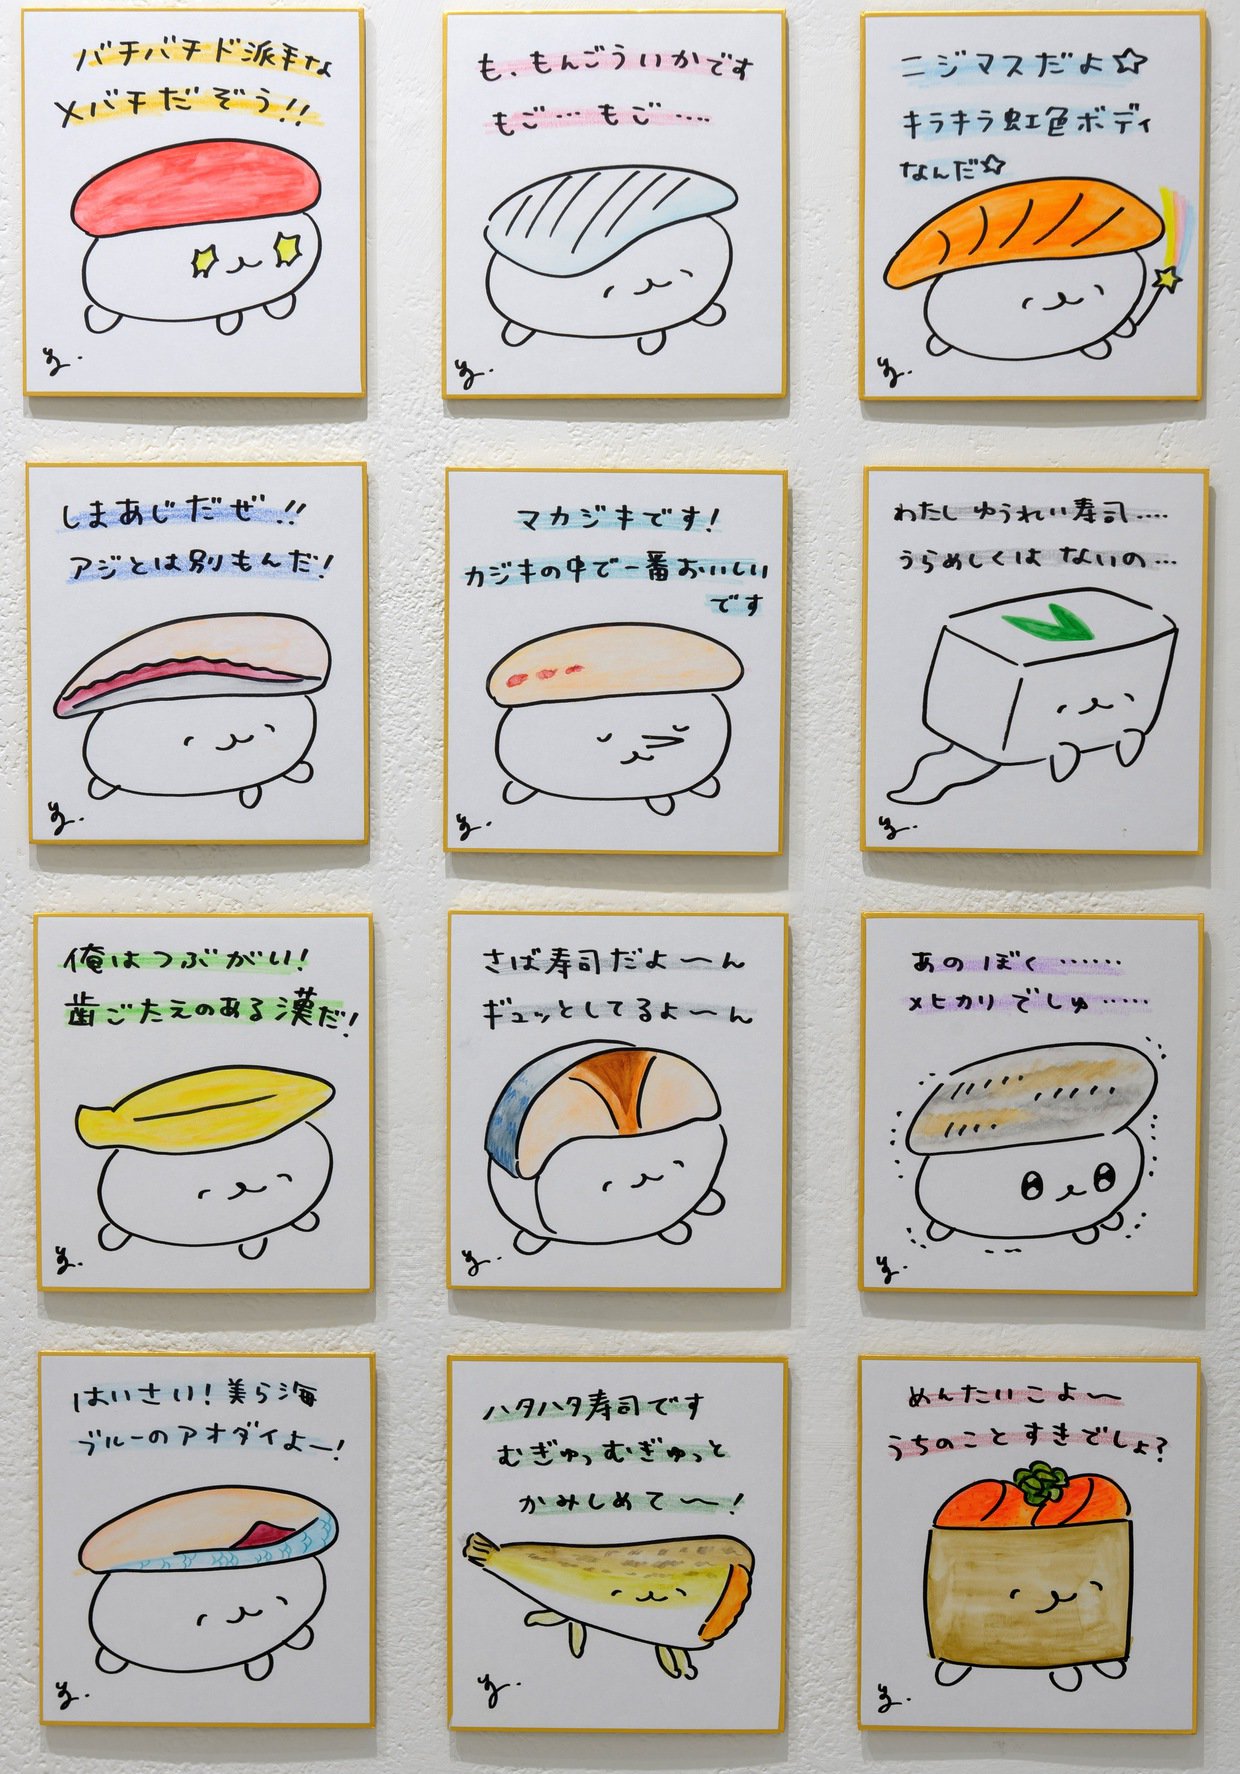 バチバチド派手な
メバチだぞう!!
も、もんごういかです
もご… もご ….
ニジマスだよ☆
キラキラ虹色ボディ
なんだ☆
しまあじだぜ!!
アジとは別もんだ!
マカジキです!
カジキの中で一番おいしい
です
わたし ゆうれい寿司….
うらめしくは ないの…
俺はつぶがい!
歯ごたえのある漢だ!
さば寿司だよ〜ん
ギュッとしてるよ〜ん
あの ぼく ……
メヒカリでしゅ……
はいさい! 美ら海
ブルーのアオダイよー!
ハタハタ寿司です
むぎゅっむぎゅっと
かみしめて〜!
めんたいこよ〜
うちのこと すきでしょ?